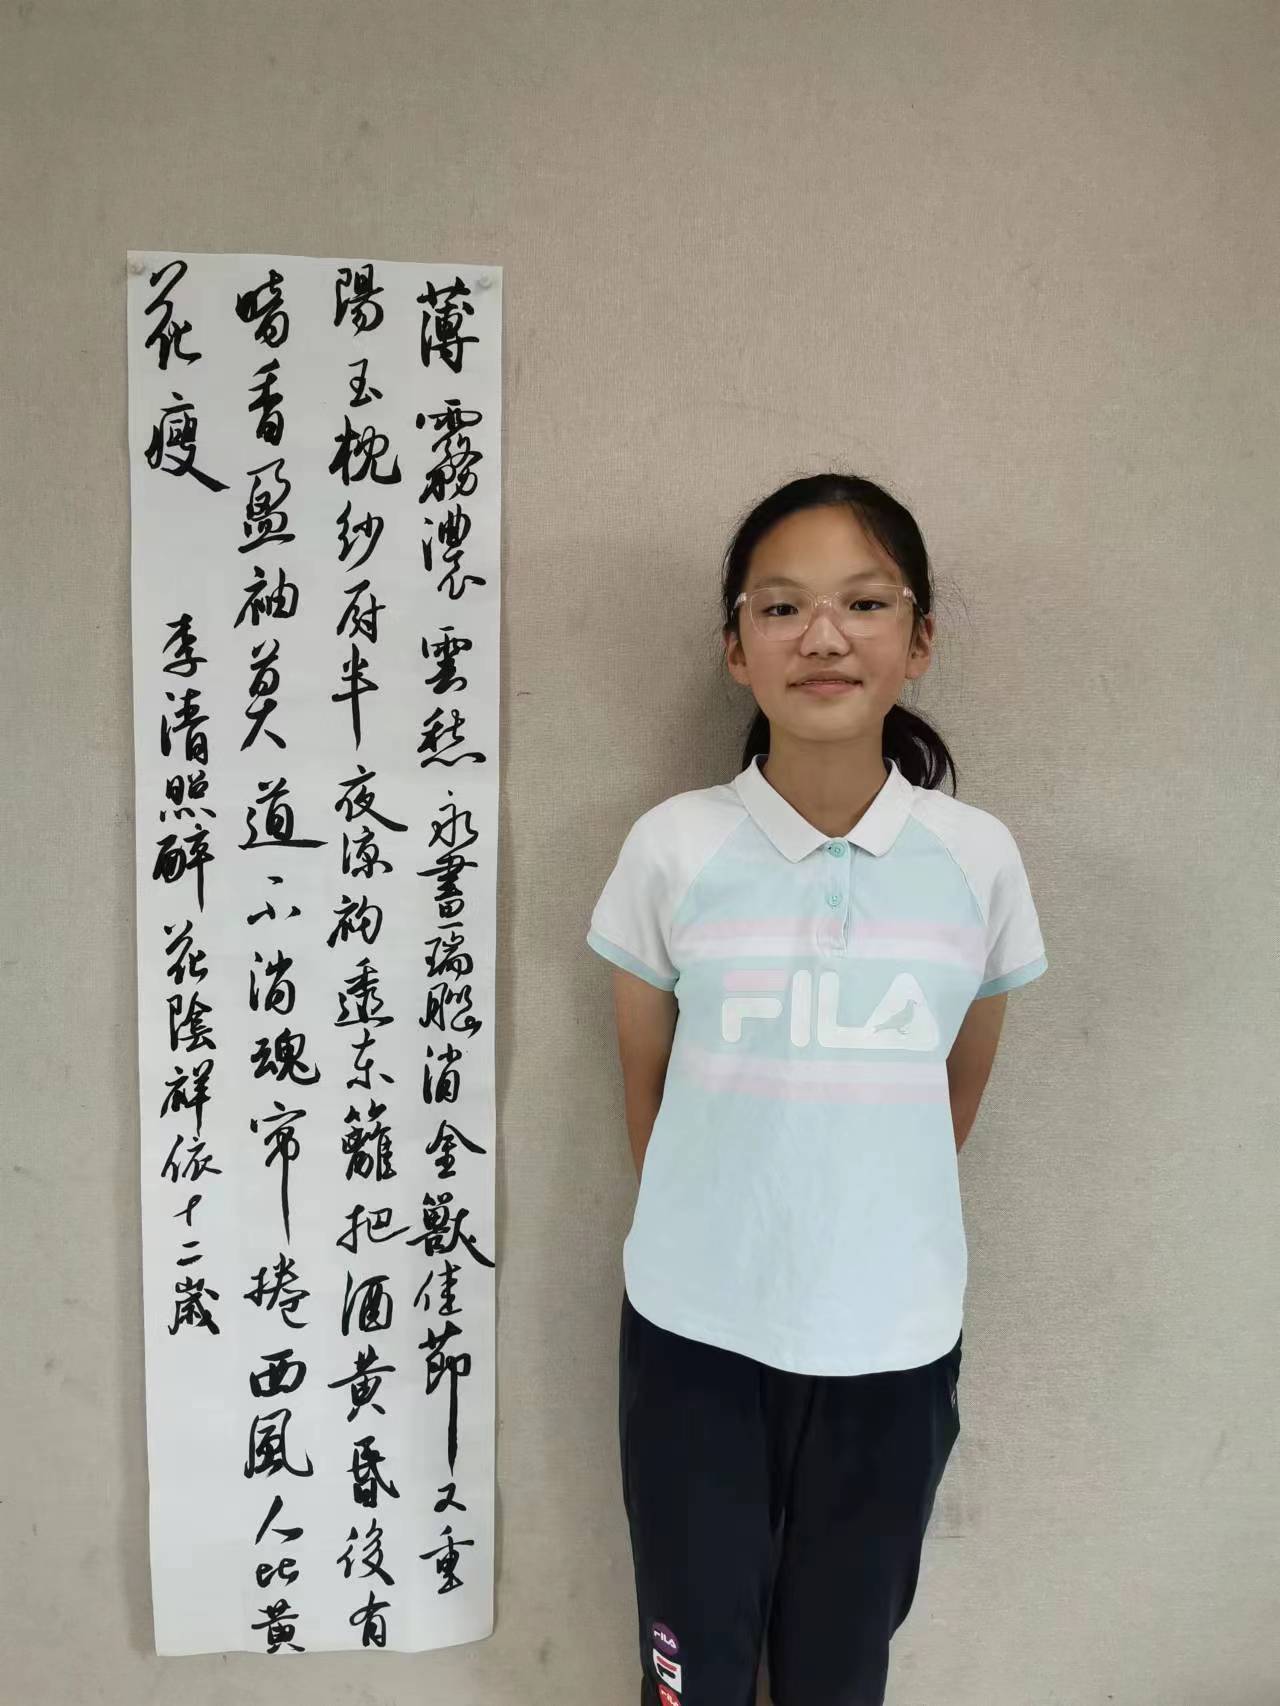 薄霧濃雲愁永晝瑞腦消金獸佳節又重
陽玉枕紗厨半夜涼初透東籬把酒黄昏後有
暗香盈袖莫道不消魂帘捲西風人比黄
花瘦
李清照醉花陰祥依十二歲
FILA
FILA
FILA